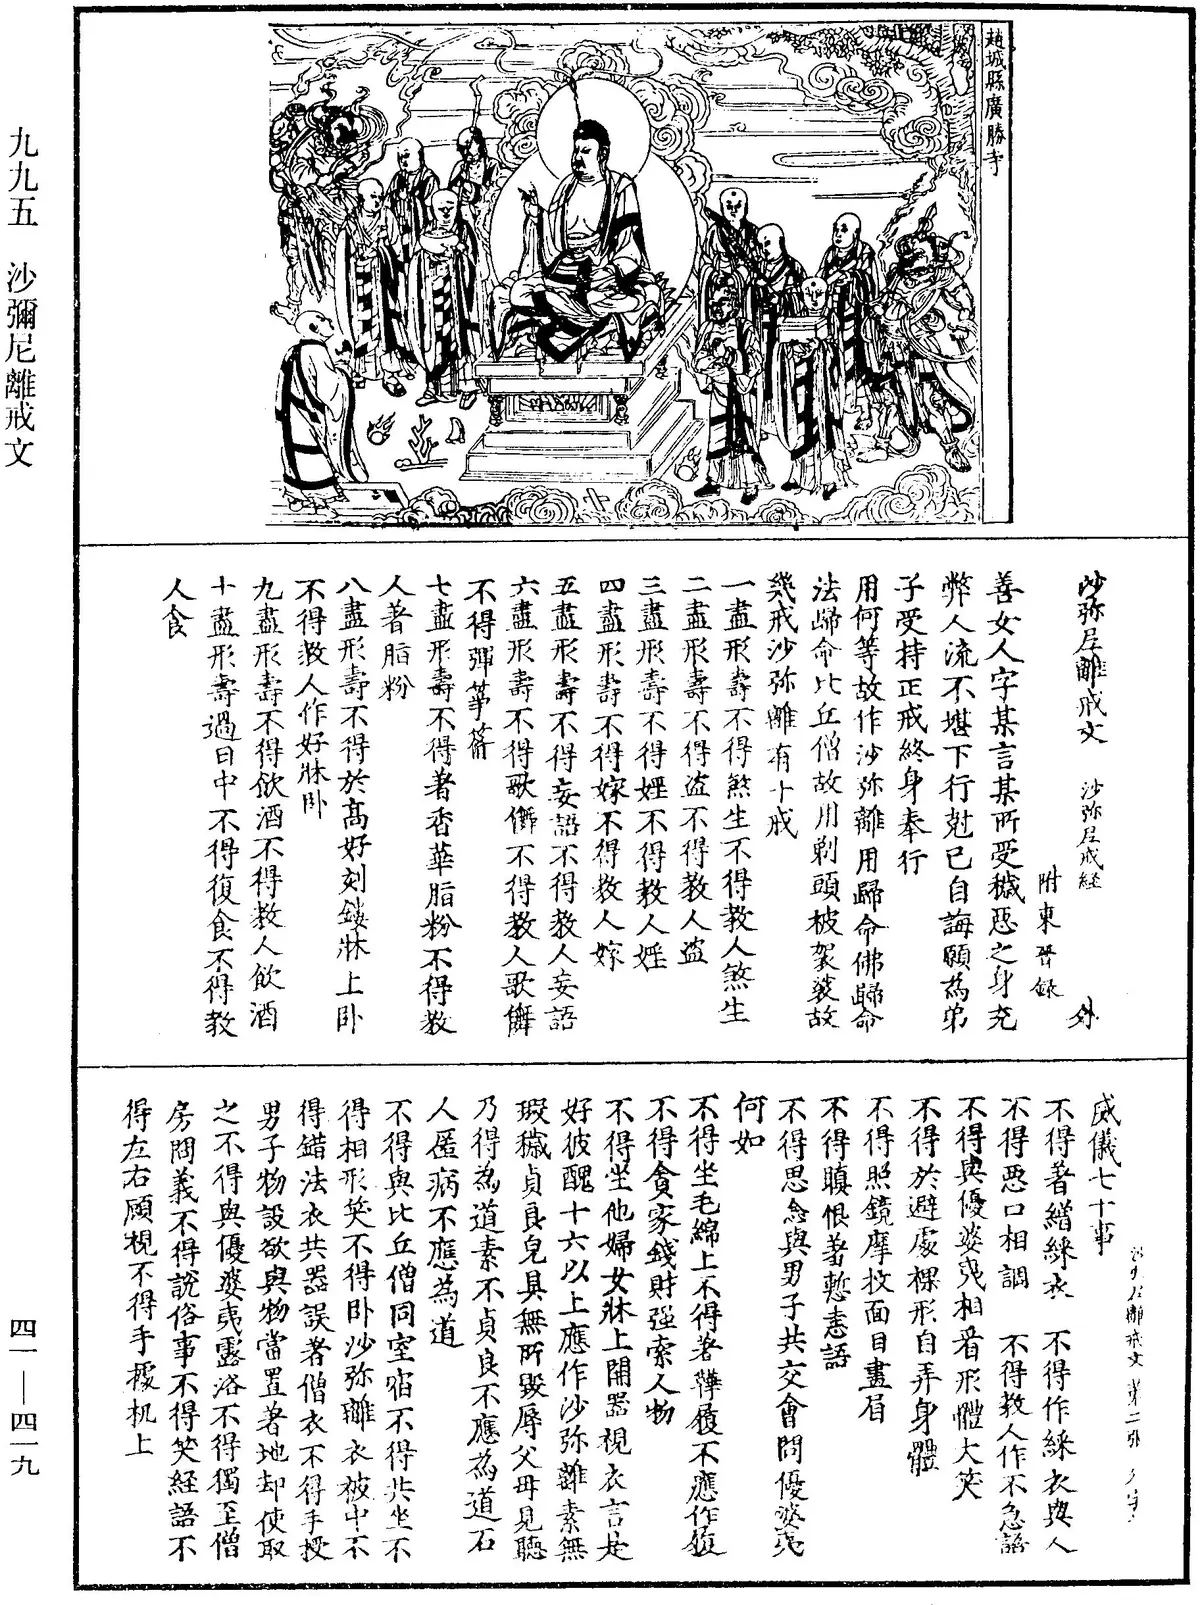 趙城縣廣勝寺
九九五　沙彌尼離戒文
沙弥尼離戒文　沙弥尼戒経　外
附東晉録
善女人字某言某所受穢惡之身充
弊人流不堪下行尅已自誨願為弟
子受持正戒終身奉行
用何等故作沙弥離用歸命佛歸命
法歸命比丘僧故用剃頭被袈裟故
幾戒沙弥離有十戒
一盡形壽不得煞生不得教人煞生
二盡形壽不得盗不得教人盗
三盡形壽不得婬不得教人婬
四盡形壽不得嫁不得教人嫁
五盡形壽不得妄語不得教人妄語
六盡形壽不得歌儛不得教人歌儛
不得彈箏篃
七盡形壽不得著香華脂粉不得教
人著脂粉
八盡形壽不得於高好刻鏤牀上卧
不得教人作好牀卧
九盡形壽不得飲酒不得教人飲酒
十盡形壽過日中不得復食不得教
人食
沙弥尼離戒文　第二張
威儀七十事
不得著繒綵衣　不得作綵衣與人
不得惡口相調　不得教人作不急語
不得與優婆夷相看形體大笑
不得於避處裸形自弄身體
不得照鏡摩抆面目畫眉
不得瞋恨著慙恚語
不得思念與男子共交會問優婆夷
何如
不得坐毛綿上不得著鞾履不應作
不得貪家錢財強索人物
不得坐他婦女牀上開器視衣言是
好彼醜十六以上應作沙弥離素無
瑕穢貞良皃具無所毀辱父母見聽
乃得為道素不貞良不應為道石
人匿病不應為道
不得與比丘僧同室宿不得共坐不
得相形笑不得卧沙弥離衣被中不
得錯法衣共器誤著僧衣不得手授
男子物設欲與物當置著地却使取
之不得與優婆夷露浴不得獨至僧
房問義不得說俗事不得笑経語不
得左右顧視不得手據机上
四一—四一九